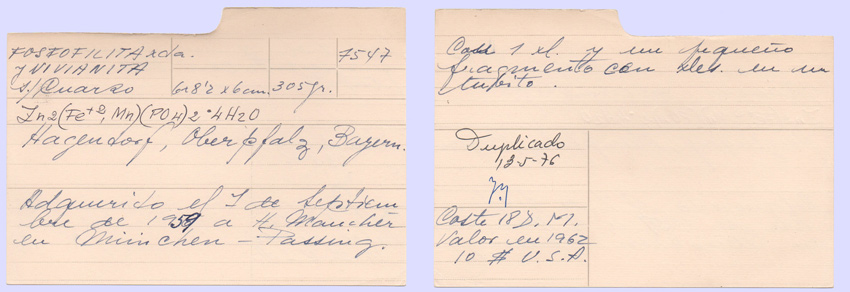 FOSFOFILITA xda.
y VIVIANITA
s/ Cuarzo
7547
6x8'2 x6cm. 305gr.
Zn2(Fe+2, Mn)(PO4)2·4H2O
Hagendorf, Oberpfalz, Bayern.
Adquirido el 1 de Septiem
bre de 1959 a H. Mancher
en München - Passing.
Con 1 xl. y un pequeño
fragmento con xles. en un
tubito.
Duplicado
13-5-76
Coste 18 D. M.
Valor en 1962
10 $ U.S.A.